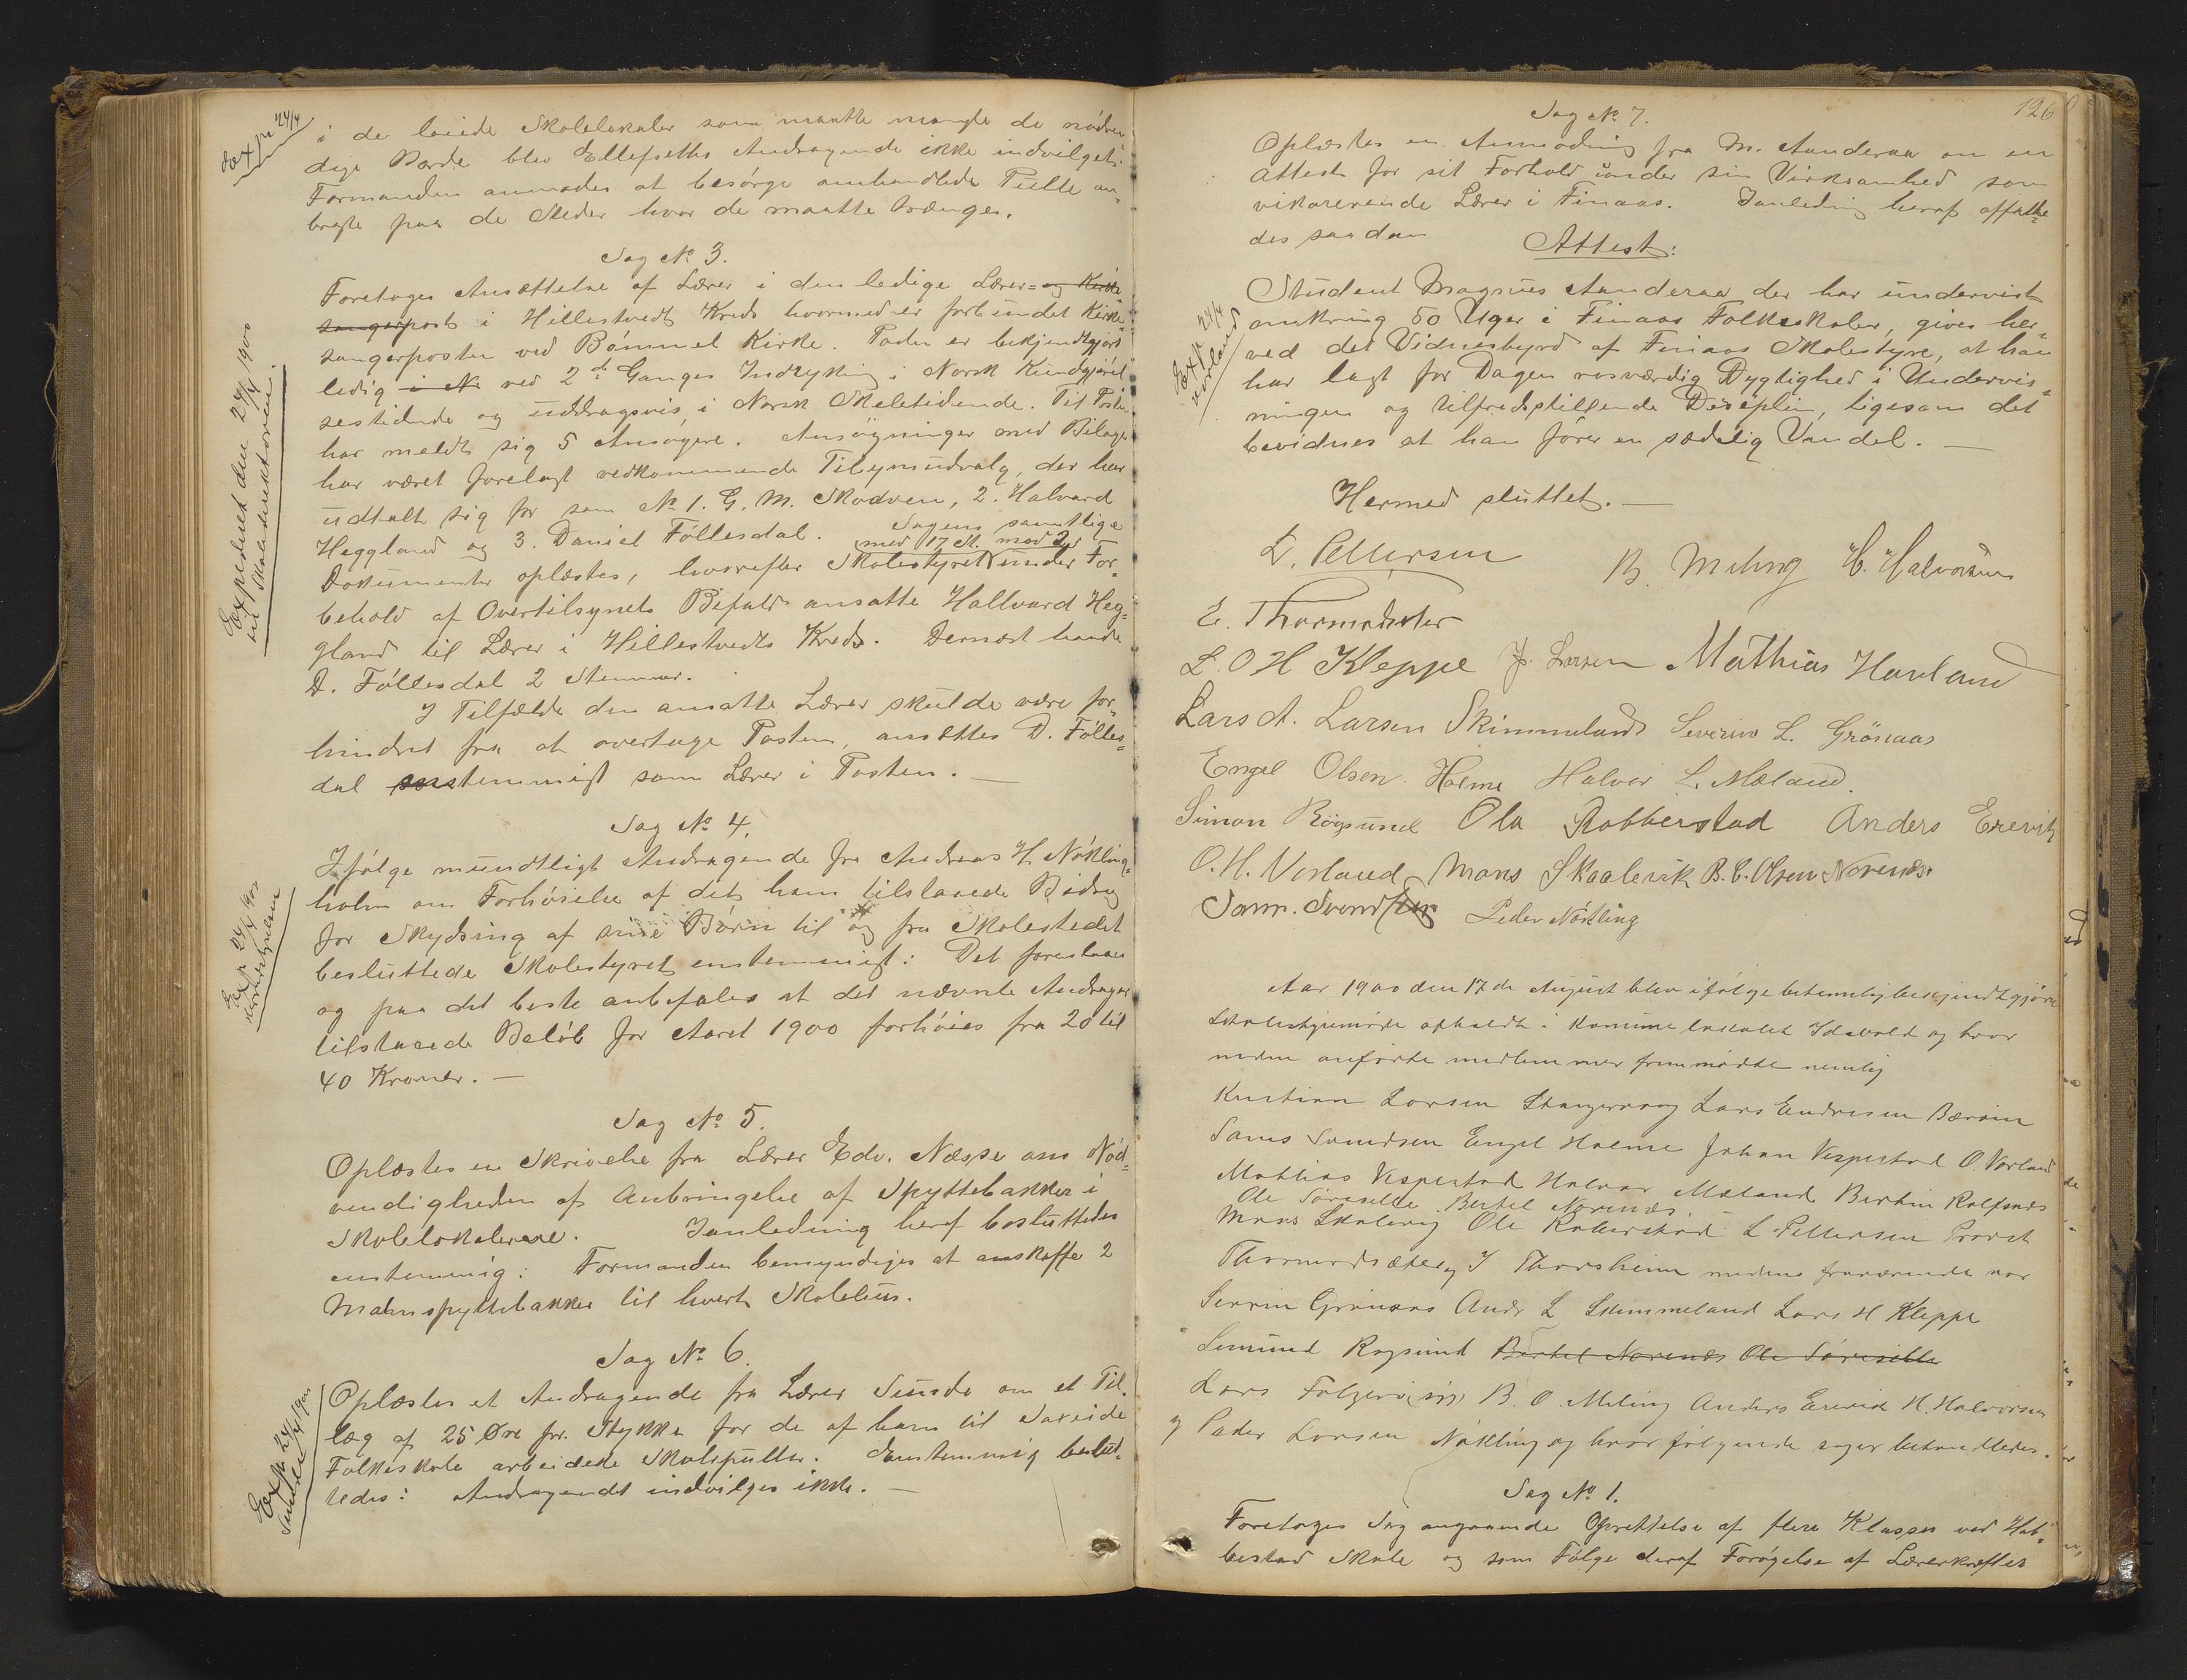 Exp. 24/4
i de leiede Skolelokaler som maatte mangle de nødven-
dige Borde blev Ellefsens Andragende ikke indvilget.
Formanden anmodes at besørge omhandlede Pulte an-
bragte paa de Steder hvor de maatte trænges.
Sag No 3.
Foretoges Ansættelse af Lærer i den ledige Lærer= og Kirke
sangerpost i Hillestvedt Kreds hvormed er forbundet Kirke-
sangerposten ved Bømmel Kirke. Posten er bekjendtgjort
ledig i N. ved 2de Ganges Indrykning i Norsk Kundgjørel-
sestidende og uddragsvis i Norsk Skoletidende. Til Posten
har meldt sig 5 Ansøgere. Ansøgninger med Bilage
har været forelagt vedkommende Tilsynsudvalg, der har
udtalt sig for som No 1. G. M. Skodven, 2. Halvard
Heggland og 3. Daniel Føllesdal. Sagens samtlige
med 17 St. mod 2
Dokumenter oplæstes, hvorefter Skolestyret under For-
behold af Overtilsynets Bifald ansatte Hallvard Heg-
gland til Lærer i Hillestvedts Kreds. Dernæst havde
D. Føllesdal 2 Stemmer.
I Tilfælde den ansatte Lærer skulde være for-
hindret fra at overtage Posten, ansættes D. Følles-
dal enstemmigt som Lærer i Posten. —
Expederet den 24/4 1900
til Skoledirektøren.
Sag No 4.
Ifølge mundtligt Andragende fra Andreas H. Nøkling-
holm om Forhøielse af det ham tilstaaede Bidrag
for Skydsning af sine Børn til og fra Skolestedet
besluttede Skolestyret enstemmigt: Det foreslaaes
og paa det beste anbefales at det nævnte Andrager
tilstaaede Beløb for Aaret 1900 forhøies fra 20 til
40 Kroner. —
Exp. 24/4 1900
Herredsstyrelsen
Sag No 5.
Oplæstes en Skrivelse fra Lærer Edv. Næsse om Nød-
vendigheden af Anbringelse af Spyttebakker i
Skolelokalerne. I anledning heraf besluttedes
enstemmig: Formanden bemyndiges at anskaffe 2
Malmspyttebakker til hvert Skolehus.
Sag No 6.
Oplæstes et Andragende fra Lærer Sunde om et Til-
læg af 25 Øre pr. Stykke for de af ham til Søreide
Folkeskole arbeidede Skolepulte. Enstemmig beslut-
tedes: Andragendet indvilges ikke. —
Exp. 24/4 1900
Sunde
126
Sag No 7.
Oplæstes en Anmodning fra M. Aanderaa om en
Attest for sit Forhold under sin Virksomhed som
vikarierende Lærer i Finaas. I anledning heraf affatte-
des saadan
Attest:
Student Magnus Aanderaa der har undervist
omkring 50 Uger i Finaas Folkeskoler, gives her-
ved det Vidnesbyrd af Finaas Skolestyre, at han
har lagt for Dagen rosværdig Dygtighed i Undervis-
ningen og tilfredsstillende Disciplin, ligesom det
bevidnes at han fører en sædelig Vandel. —
Exp. 24/4
Vorland
Hermed sluttet. —
L. Pettersen B. Meling H. Halvorsen
E. Thormodsæter
L. O H Kleppe J. Larsen Mathias Havland
Lars A. Larsen Skimmeland Severin L. Grønaas
Engel Olsen Holme Halvor L. Mæland.
Simon Røigsund Ola Robberstad Anders Erevik
O. H. Vorland Mons Skaalevik B. C. Olsen Norenæs
Sam. Svendsen Peder Nøkling
Aar 1900 den 17de August blev ifølge betimelig bekjendtgjøre
Skolestyremøde afholdt i Komune lokalet Idavold og hvor
neden anførte medlemmer fremmødte nemlig
Kristian Larsen Stangervaag Lars Endresen Bærøen
Sams Svendsen Engel Holme Johan Vespestad O. Vorland
Mathias Vespestad Halvor Mæland Bertin Rolfsnes
Ole Søreselle Bertel Norenæs
Mons Skalevig Ole Roberstad L Pettersen Provst
Thormodsæter og J Thorsheim medens fraværende var
Serrin Grønaas Andr L Skimmeland Lars H Kleppe
Simund Røgsund Bertel Norenæs Ole Søreselle
Lars B. O. Meling Anders Erevik H. Halvorsen
og Peder Larsen Nøkling og hvor følgende sager behandledes.
Sag No 1.
Foretoges Sag angaaende Oprettelse af flere Klasser ved Hab-
bestad Skole og som Følge deraf Forøgelse af Lærerkræfter